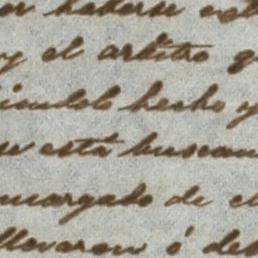 er haberse est
y el arbitro q
iendolo hecho y
ue está buscan
ncargado de el
llevaron ó deb